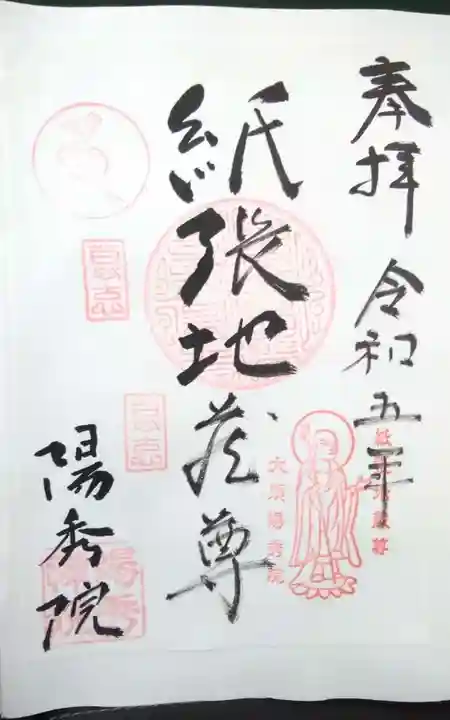 奉拝 令和五年
紙張地蔵尊
陽秀院
紙張地蔵尊
大須陽秀院